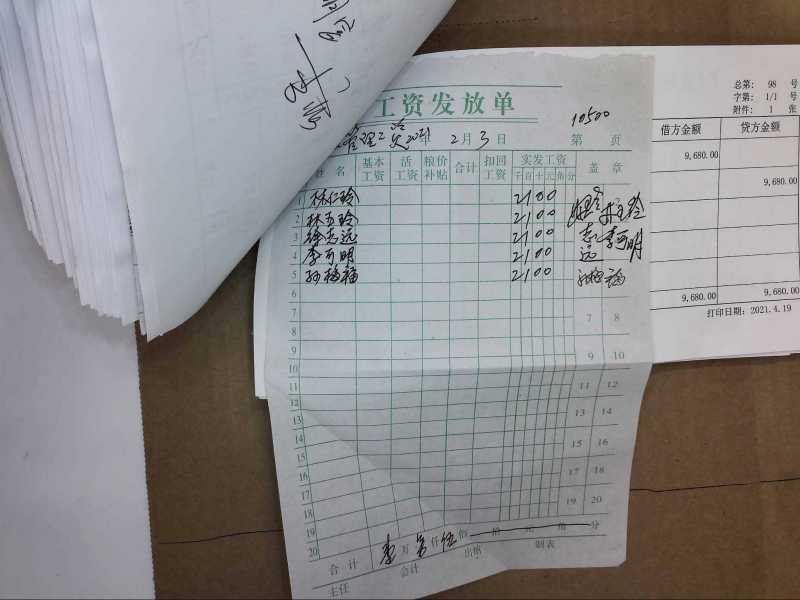 工资发放单
10500
管理工资2021年 2月3日 第 页
姓名 基本工资 活工资 粮价补贴 合计 扣回工资 实发工资 盖章
千百十元角分
1 林仁玲 2100
2 林玉玲 2100
3 徐志远 2100
4 李可明 2100
5 孙福福 2100
6
7 7 8
8
9 9 10
10
11 11 12
12
13 13 14
14
15 15 16
16
17 17 18
18
19 19 20
20
合计 万 仟伍佰 拾 元 角 分
主任 会计 出纳 制表
总第: 98 号
字第: 1/1 号
附件: 1 张
借方金额 贷方金额
9,680.00
9,680.00
9,680.00 9,680.00
打印日期: 2021.4.19